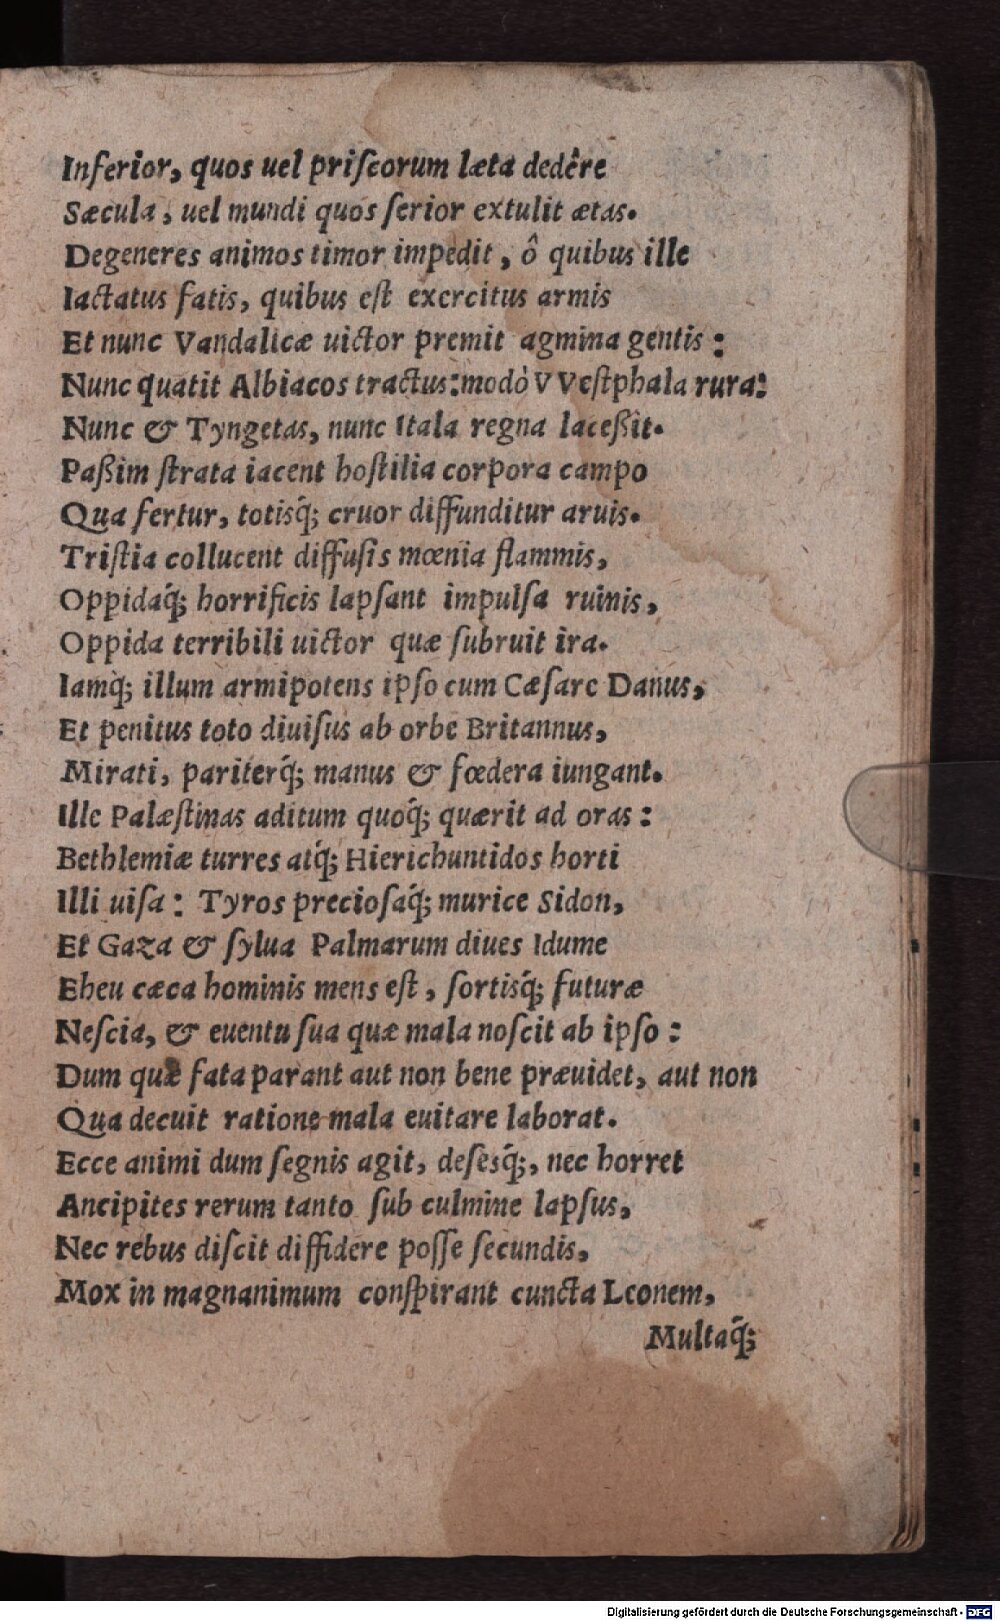 Inferior, quos uel priſcorum læta dedêre
Sæcula, uel mundi quos ſerior extulit ætas.
Degeneres animos timor impedit, ô quibus ille
Iactatus fatis, quibus eſt exercitus armis
Et nunc Vandalicæ uictor premit agmina gentis:
Nunc quatit Albiacos tractus: modò VVeſtphala rura:
Nunc & Tyngetas, nunc Itala regna laceßit.
Paßim ſtrata iacent hoſtilia corpora campo
Qua fertur, totisq́; cruor diffunditur aruis.
Triſtia collucent diffuſis mœnia flammis,
Oppidaq́; horrificis lapſant impulſa ruinis,
Oppida terribili uictor quæ ſubruit ira.
Iamq́; illum armipotens ipſo cum Cæſare Danus,
Et penitus toto diuiſus ab orbe Britannus,
Mirati, pariterq́; manus & fœdera iungant.
Ille Palæſtinas aditum quoq́; quærit ad oras:
Bethlemiæ turres atq́; Hierichuntidos horti
Illi uiſa: Tyros precioſaq́; murice Sidon,
Et Gaza & ſylua Palmarum diues Idume
Eheu cæca hominis mens eſt, ſortisq́; futuræ
Neſcia, & euentu ſua quæ mala noſcit ab ipſo:
Dum quæ fata parant aut non bene præuidet, aut non
Qua decuit ratione mala euitare laborat.
Ecce animi dum ſegnis agit, deſesq́;, nec horret
Ancipites rerum tanto ſub culmine lapſus,
Nec rebus diſcit diffidere poſſe ſecundis,
Mox in magnanimum conſpirant cuncta Leonem,
Multaq́;
Digitalisierung gefördert durch die Deutsche Forschungsgemeinschaft - DFG